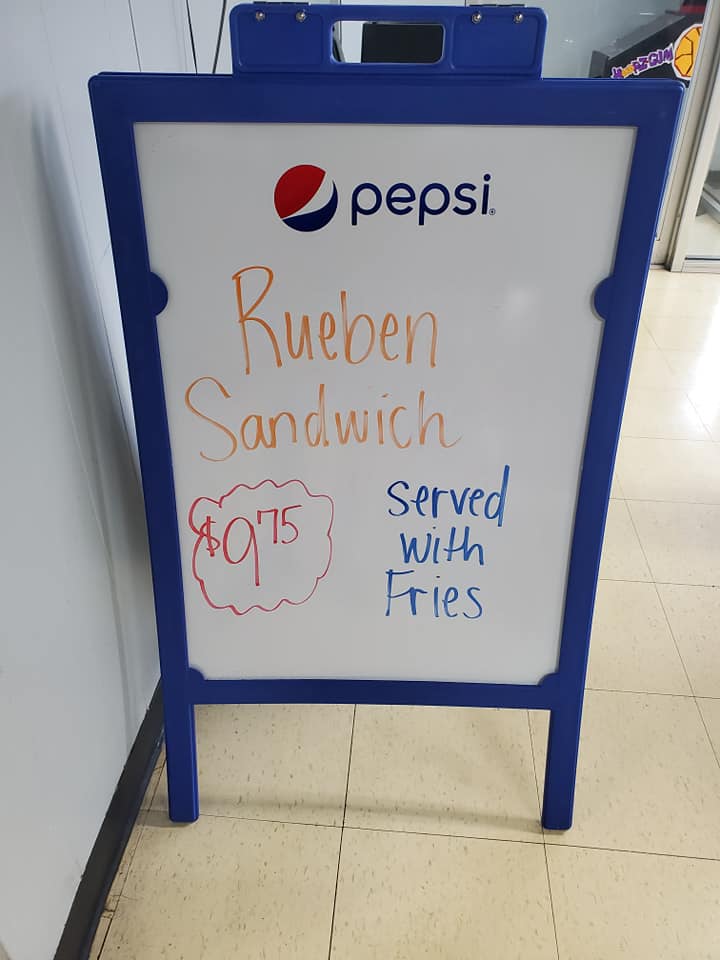 pepsi
Rueben
Sandwich
$9.75
Served
with
Fries